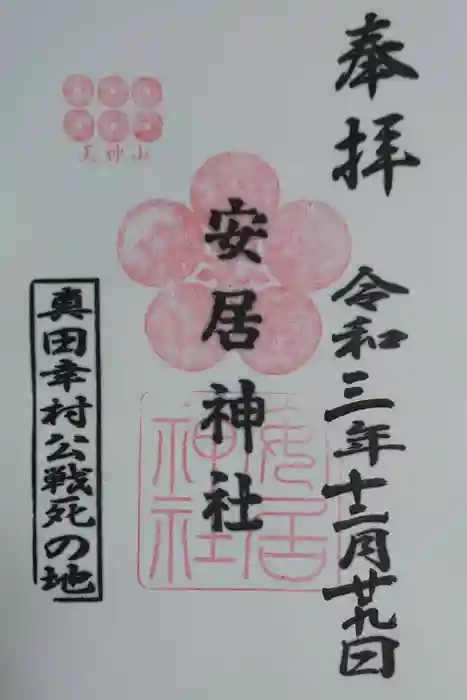 奉拝
令和三年十二月廿九日
安居神社
安居神社
天神山
真田幸村公戦死の地